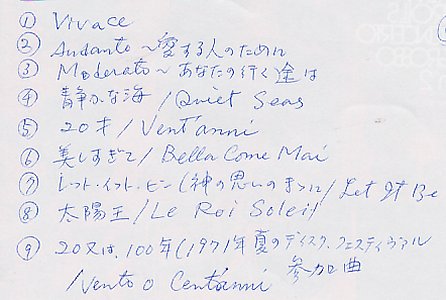 ① Vivace
② Andante～愛する人のために
③ Moderato～あなたの行く途は
④ 静かな海/Quiet Seas
⑤ 20才/Vent'anni
⑥ 美しすぎて/Bella Come Mai
⑦ レット・イット・ビー(神の思いのままに/Let It Be
⑧ 太陽王/Le Roi Soleil
⑨ 20又は、100年(1971年夏のディスク、フェスティヴァル
/Vento o Cent'anni 参加曲